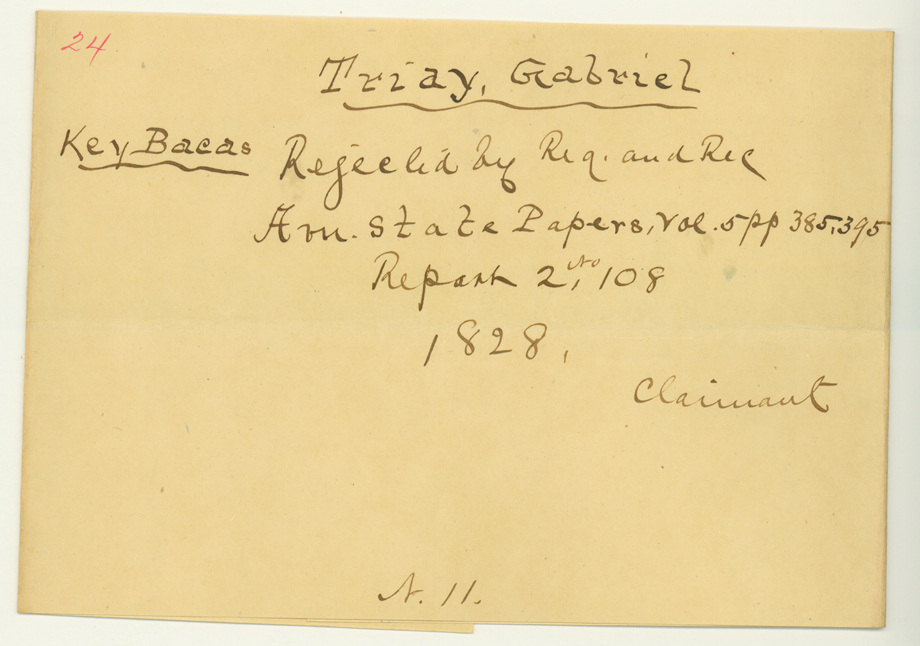 24
Triay, Gabriel
Key Bacas Rejected by Reg. and Rec
Am. State Papers, Vol. 5 pp 385, 395
Report 2, No 108
1828,
Claimant
N. 11.